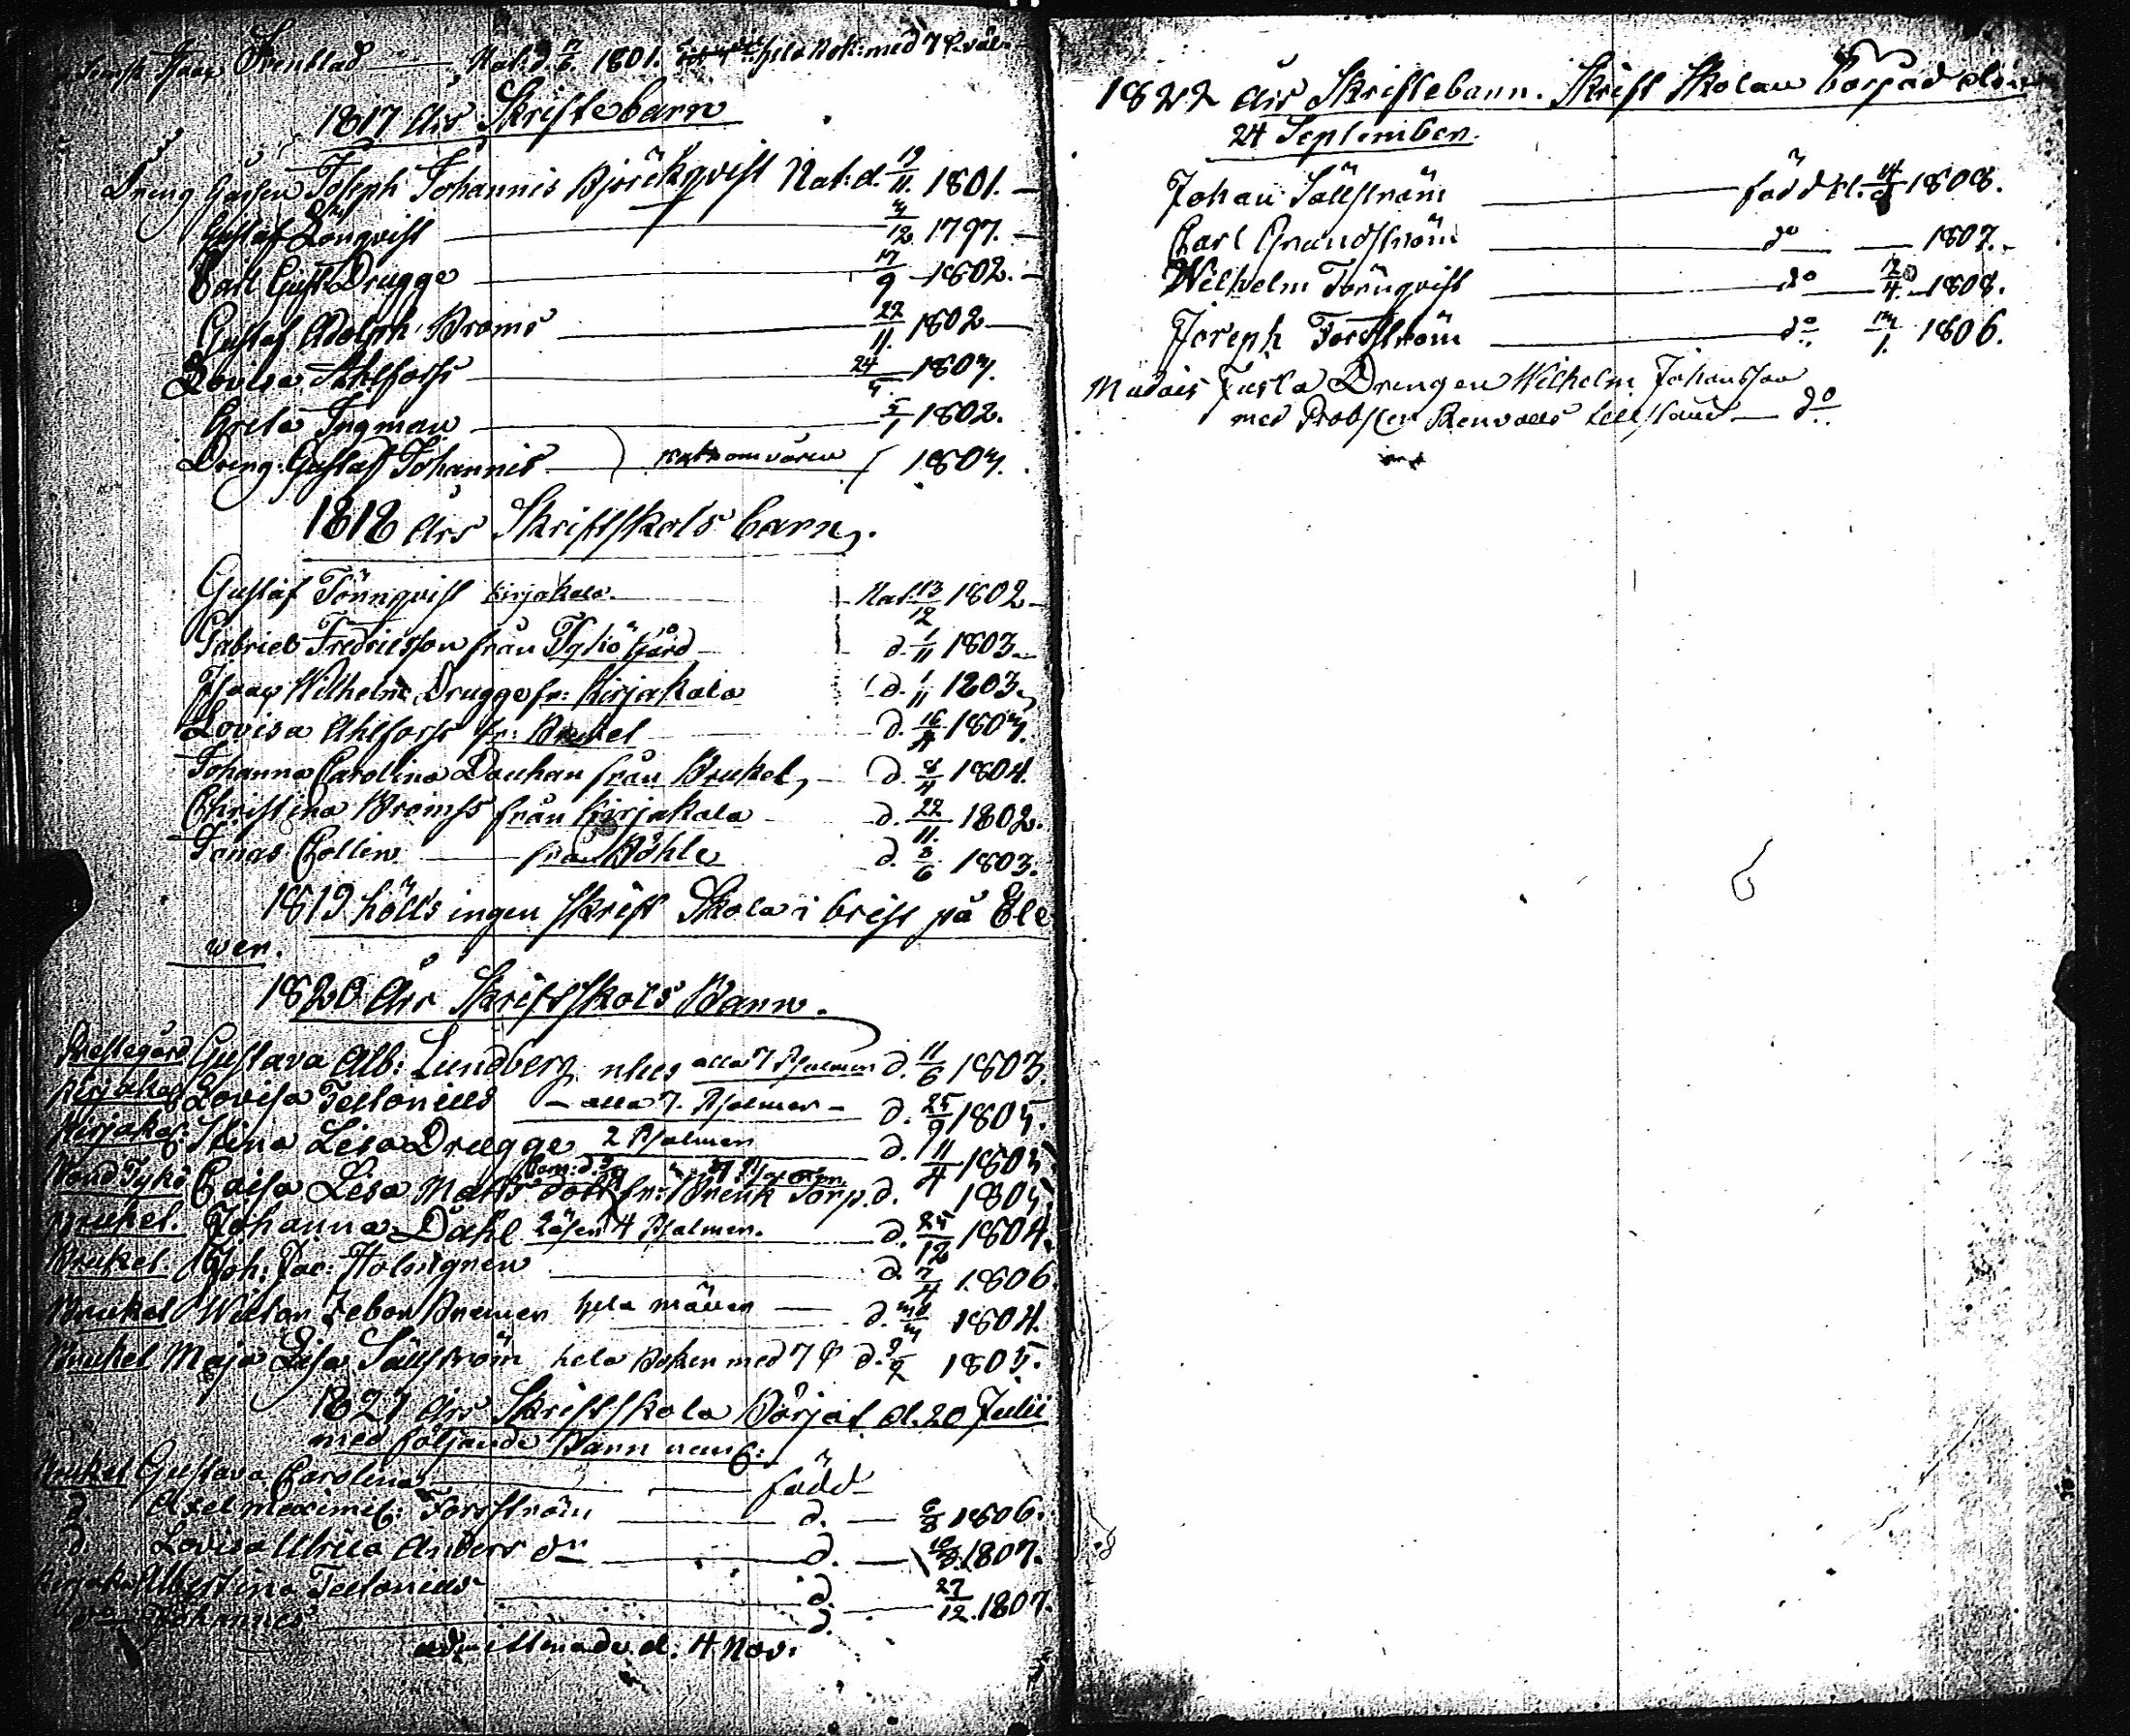 Isaac Stenblad Nat: d. 1801. hela Bok: med 7 P. väl
1817 Års Skriftebarn
Dreng Gossen Joseph Johannis Björckqvist Nat: d. 19/11. 1801.
Gustaf Lönqvist 3/12 1797.
Carl Gust: Drugge 17/9 1802.
Gustaf Adolph Broms 22/11. 1802
Lovisa Ahlforss 24 1803.
Greta Ingman 5/1 1802.
Dreng. Gustaf Johannis 1803.
1818 Års Skriftskols barn.
Gustaf Tönnqvist Kirjakala. Nat. 13/12 1802
Gabriel Fredricsson från Tykö Gård d. 1/11 1803
Isaac Wilhelm Drugge fr: Kirjakala d. 1/11 1803
Lovisa Ahlforss fr: Bruket d. 16/4 1803.
Johanna Carolina Dauhan från Bruket, d. 4/4 1804.
Christina Bromss från Kirjakala d. 22/11. 1802.
Jonas Collin från Böhle d. 8/6 1803.
1819 hölls ingen Skrift Skola i brist på Ele
wer.
1820 Års Skriftskols Barn.
Prestegård Gustava Alb: Lundberg alla 7 Psalmer d. 11/6 1803.
Kirjakal Lovisa Tectonius alla 7. Psalmer d. 25/9 1805.
Kirjakal: Stina Lisa Drugge 2 Psalmer d. 11/4 1805
Caisa Lisa Matts dott: fr: Bruk Torp. d. 1805
Bruket. Johanna Dahl Läser 4 Psalmer. d. 25/12 1804.
Bruket. Joh: Jac: Holmgren d. 7/4 1806.
Bruket Bremer hela d. 1804.
Bruket Maja Lisa Sällström hela Boken med 7 P d. 9/2 1805.
1821 Års Skriftskola Börjat d. 20 Julii
med följande Barn neml:
Bruket Gustava Carolina född
d. Axel Maximil: Forsström d. 6/8 1806.
d. Lovisa Ulrica Anders dr d. 1807.
Kirjaka Albertina Tectonius d. 27/12. 1807.
do Johannes d.
admitterade d. 4 Nov.
1822 Års Skriftebarn. Skrift Skolan börjad den
24 September.
Johan Sällström född d. 14 1808.
Carl Grundström do 1807.
Wilhelm Törnqvist do 12/4. 1808.
Joseph Forsström do 1. 1806.
Madais Jusla Drengen Wilhelm Johansson
med Probsten Renvalls tillstånd do